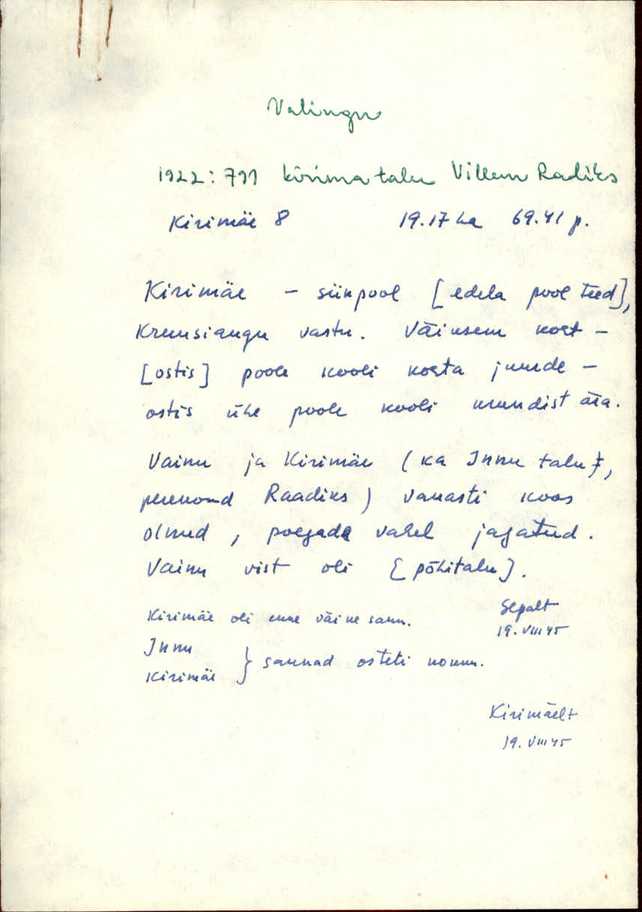 Valingu
1922: 791 Kirima talu Villem Radiks
Kirimäe 8 19.17 ha 69.41 p.
Kirimäe – siinpool [edela pool teed],
vastu. Väiksem koht –
[ostis] poole kooli kohta juurde –
ostis ühe poole kooli krundist ära.
Vainu ja Kirimäe (ka Innu talu,
perenomd Raadiks) vanasti koos
olnud, poegade vahel jagatud.
Vainu vist oli [põhitalu].
Kirimäe oli enne väike saun.
Sepalt
19. VIII 45
Innu
Kirimäe } saunad osteti
Kirimäelt
19. VIII 45